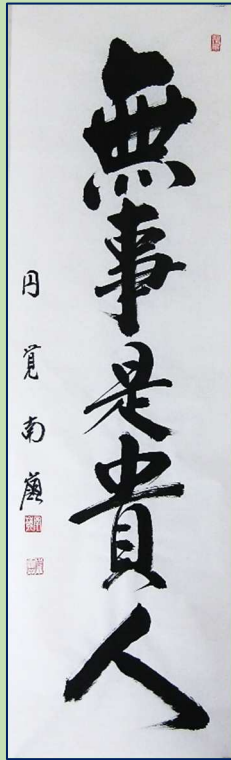 無事是貴人
円覚南嶺